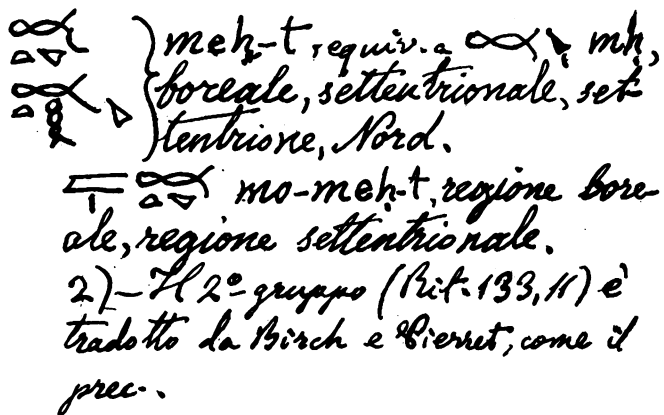 meḥ-t, equiv. a mḥ,
boreale, settentrionale, set-
tentrione, Nord.
mo-meḥ-t, regione bore-
ale, regione settentrionale.
2)-Il 2º gruppo (Rit. 133, 11) è
tradotto da Birch e Pierret, come il
prec.